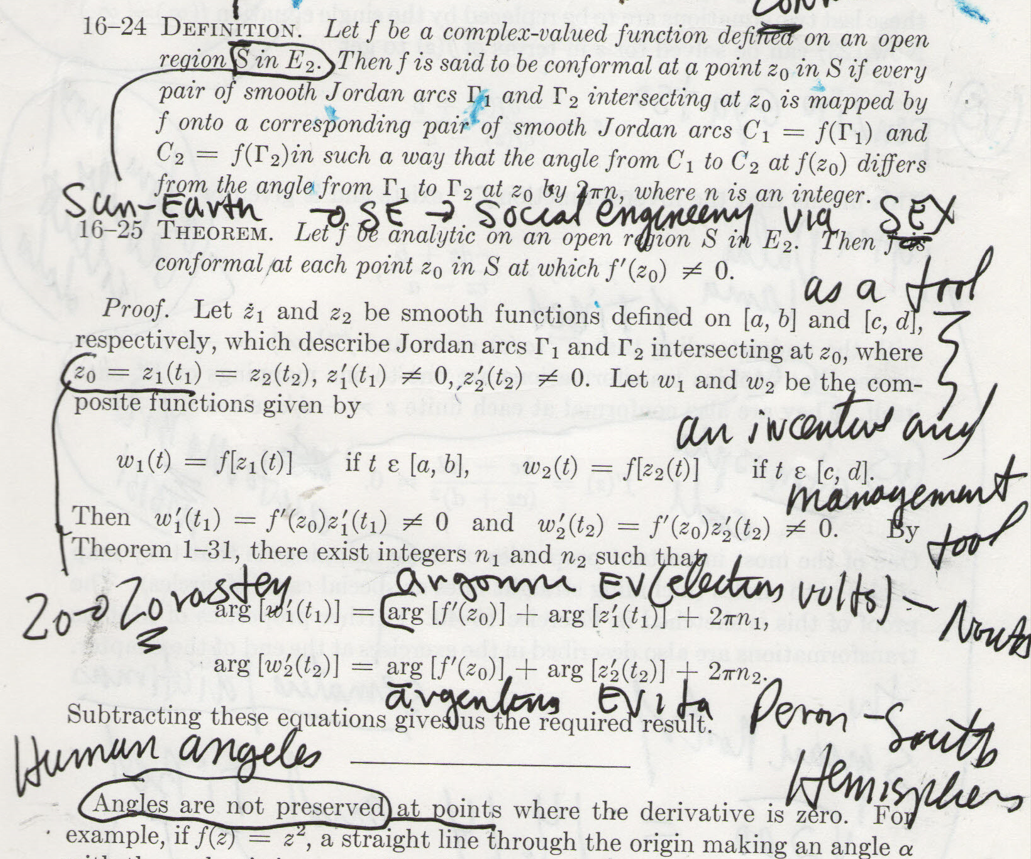 16–24 DEFINITION. Let f be a complex-valued function defined on an open
region S in E₂. Then f is said to be conformal at a point z₀ in S if every
pair of smooth Jordan arcs Γ₁ and Γ₂ intersecting at z₀ is mapped by
f onto a corresponding pair of smooth Jordan arcs C₁ = f(Γ₁) and
C₂ = f(Γ₂)in such a way that the angle from C₁ to C₂ at f(z₀) differs
from the angle from Γ₁ to Γ₂ at z₀ by 2πn, where n is an integer.
Sun-Earth → SE → Social engineeriy via SEX
16–25 THEOREM. Let f be analytic on an open region S in E₂. Then f is
conformal at each point z₀ in S at which f′(z₀) ≠ 0.
as a tool
Proof. Let z₁ and z₂ be smooth functions defined on [a, b] and [c, d],
respectively, which describe Jordan arcs Γ₁ and Γ₂ intersecting at z₀, where
z₀ = z₁(t₁) = z₂(t₂), z₁′(t₁) ≠ 0, z₂′(t₂) ≠ 0. Let w₁ and w₂ be the com-
posite functions given by
an incentive and
w₁(t) = f[z₁(t)] if t ε [a, b], w₂(t) = f[z₂(t)] if t ε [c, d].
management
Then w₁′(t₁) = f′(z₀)z₁′(t₁) ≠ 0 and w₂′(t₂) = f′(z₀)z₂′(t₂) ≠ 0. By
tool
Theorem 1–31, there exist integers n₁ and n₂ such that
Zo → Zorastey argonne EV (electron volts) –
arg [w₁′(t₁)] = arg [f′(z₀)] + arg [z₁′(t₁)] + 2πn₁,
arg [w₂′(t₂)] = arg [f′(z₀)] + arg [z₂′(t₂)] + 2πn₂.
argentina EVita Peron – South
Subtracting these equations gives us the required result.
Human angeles
Hemisphere
Angles are not preserved at points where the derivative is zero. For
example, if f(z) = z², a straight line through the origin making an angle α